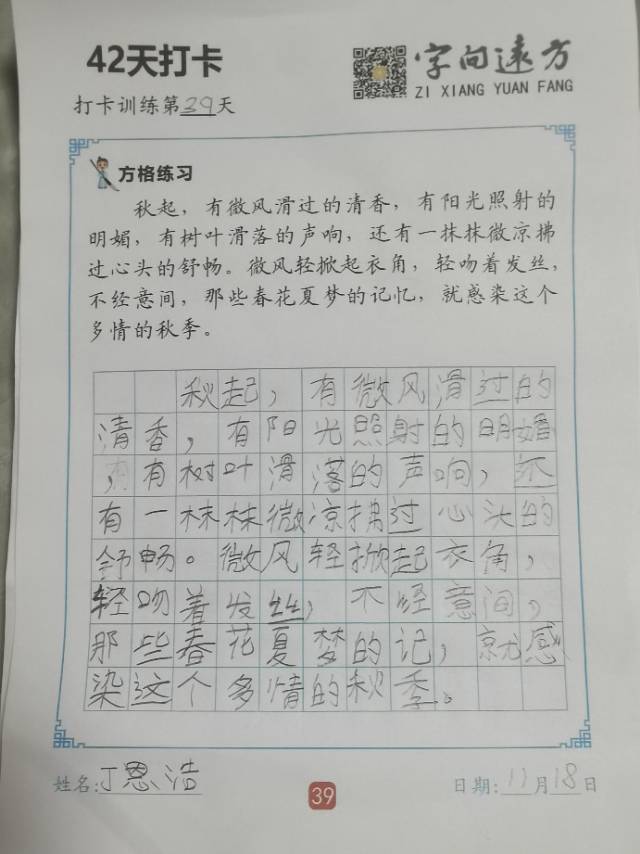 42天打卡
字向远方
ZI XIANG YUAN FANG
打卡训练第39天
方格练习
秋起，有微风滑过的清香，有阳光照射的
明媚，有树叶滑落的声响，还有一抹抹微凉拂
过心头的舒畅。微风轻掀起衣角，轻吻着发丝，
不经意间，那些春花夏梦的记忆，就感染这个
多情的秋季。
秋起，有微风滑过的
清香，有阳光照射的明媚
，有树叶滑落的声响，还
有一抹抹微凉拂过心头的
舒畅。微风轻掀起衣角，
轻吻着发丝，不经意间，
那些春花夏梦的记，就感
染这个多情的秋季。
姓名:丁恩浩
39
日期:11月18日